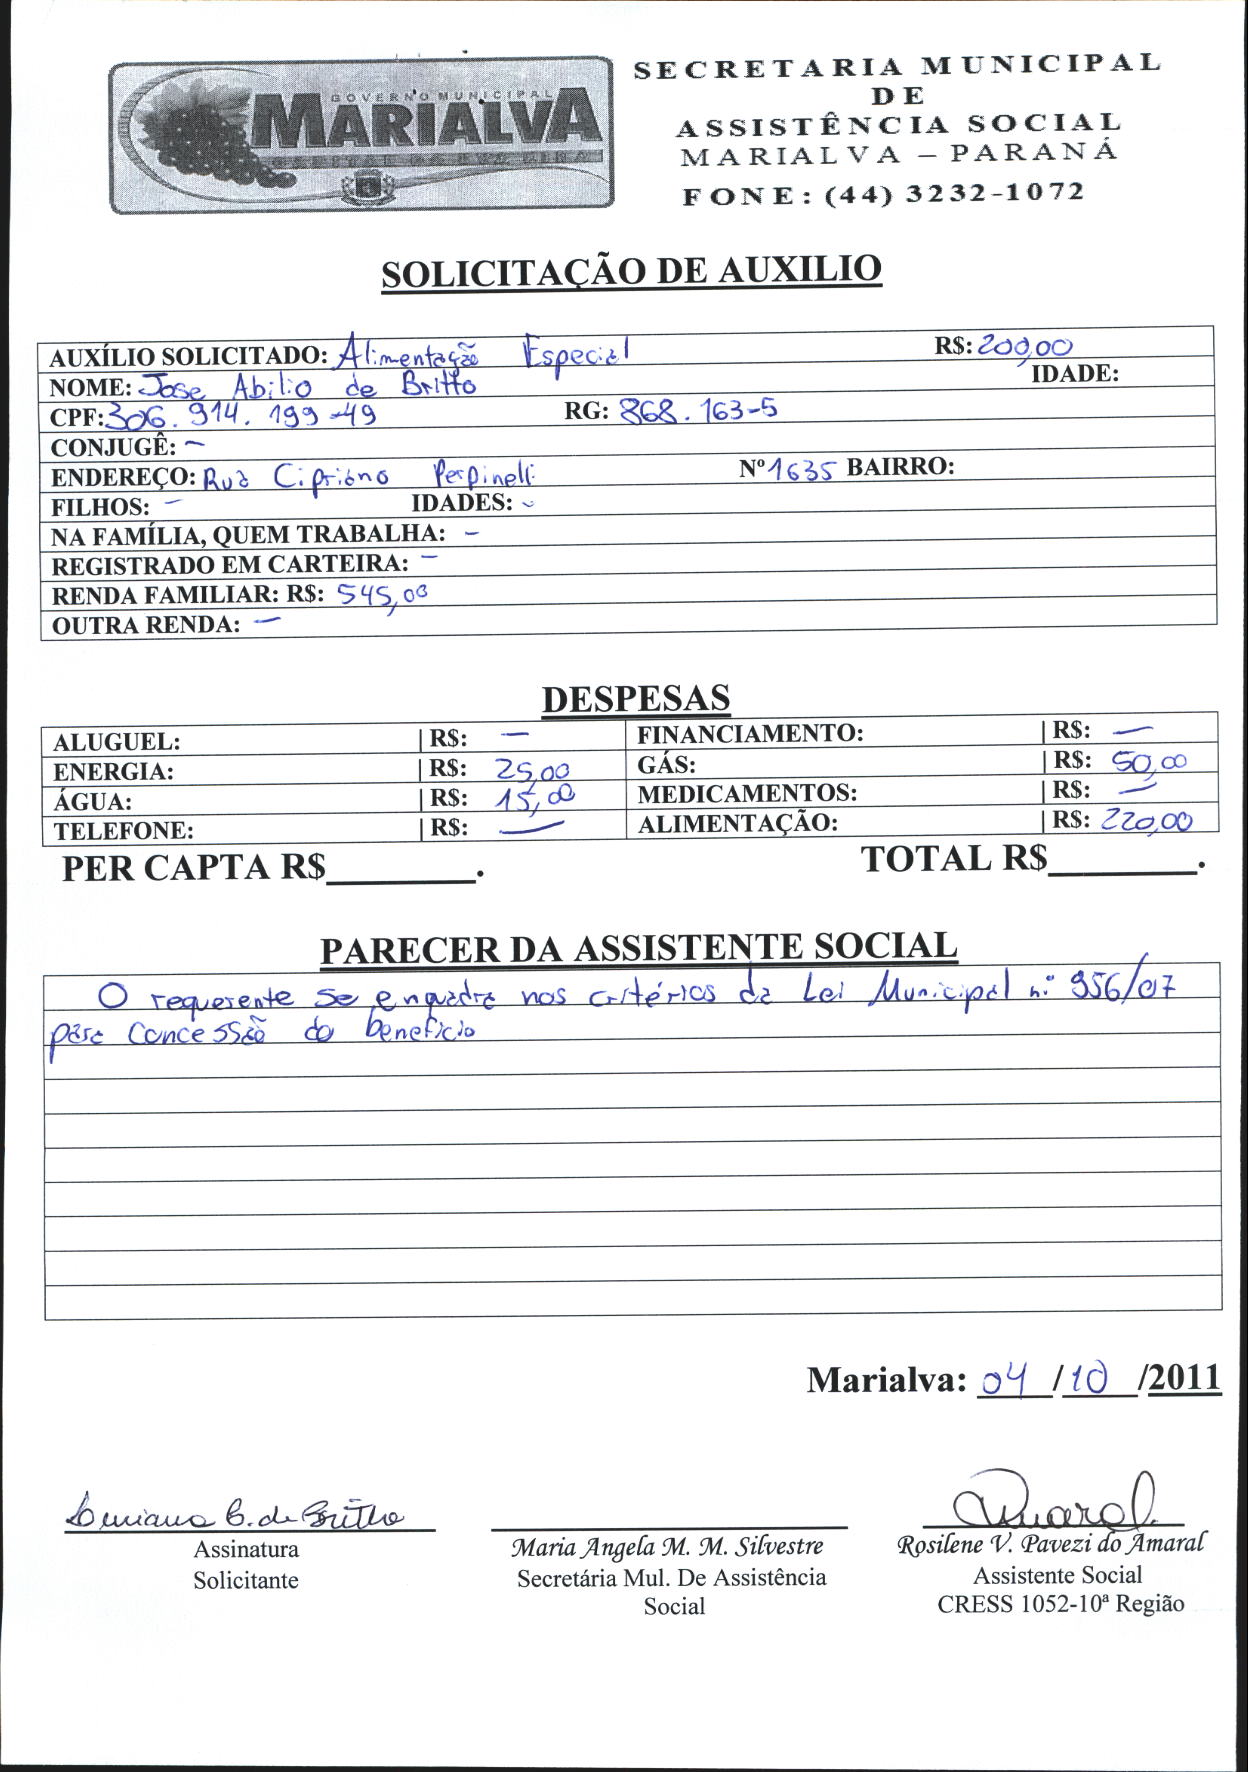 GOVERNO MUNICIPAL
MARIALVA
CAPITAL DA UVA FINA
SECRETARIA MUNICIPAL
DE
ASSISTÊNCIA SOCIAL
MARIALVA – PARANÁ
FONE: (44) 3232-1072
SOLICITAÇÃO DE AUXILIO
AUXÍLIO SOLICITADO: Alimentação Especial R$: 200,00
NOME: Jose Abilio de Britto IDADE:
CPF: 306.914.199-49 RG: 868.163-5
CONJUGÊ: –
ENDEREÇO: Rua Cipriano Perpinelli Nº 1635 BAIRRO:
FILHOS: – IDADES: –
NA FAMÍLIA, QUEM TRABALHA: –
REGISTRADO EM CARTEIRA: –
RENDA FAMILIAR: R$: 545,00
OUTRA RENDA: –
DESPESAS
ALUGUEL: | R$: – FINANCIAMENTO: | R$: –
ENERGIA: | R$: 25,00 GÁS: | R$: 50,00
ÁGUA: | R$: 15,00 MEDICAMENTOS: | R$: –
TELEFONE: | R$: – ALIMENTAÇÃO: | R$: 220,00
PER CAPTA R$________. TOTAL R$________.
PARECER DA ASSISTENTE SOCIAL
O requerente se enquadra nos critérios da Lei Municipal nº 956/07
para concessão do beneficio
Marialva: 04/10/2011
C. de Britto
Assinatura
Solicitante
Maria Angela M. M. Silvestre
Secretária Mul. De Assistência
Social
Rosilene V. Pavezi do Amaral
Assistente Social
CRESS 1052-10ª Região